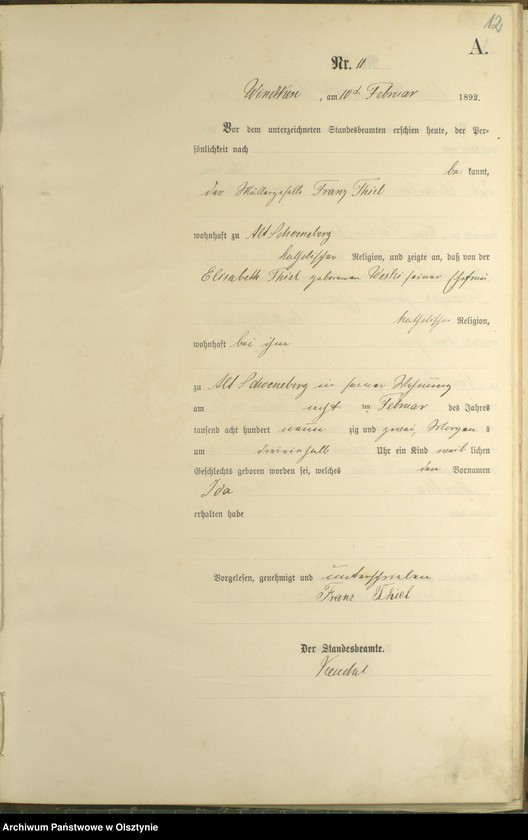 12
A.
Nr. 11
am 10ten Februar 1892.
Vor dem unterzeichneten Standesbeamten erschien heute, der Per-
sönlichkeit nach
be kannt,
der Müllergeselle Franz Thiel
wohnhaft zu Alt Schoeneberg
katholischer Religion, und zeigte an, daß von der
Elisabeth Thiel geborenen seiner Ehefrau
katholischer Religion,
wohnhaft bei ihm
zu Alt Schoeneberg in seiner Wohnung
am acht ten Februar des Jahres
tausend acht hundert neun zig und zwei, Morgens
um Uhr ein Kind weib lichen
Geschlechts geboren worden sei, welches den Vornamen
Ida
erhalten habe
Vorgelesen, genehmigt und unterschrieben
Franz Thiel
Der Standesbeamte.
Archiwum Państwowe w Olsztynie